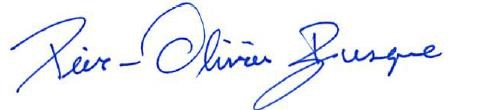 Pier-Olivier Busque